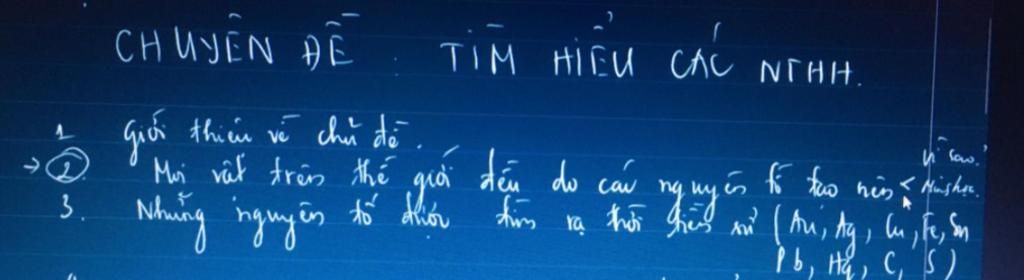 CHUYÊN ĐỀ : TÌM HIỂU CÁC NTHH.
1 Giới thiệu về chủ đề.
→ 2 Mọi vật trên thế giới đều do các nguyên tố tạo nên < Vì sao?
3. Những nguyên tố được tìm ra thời tiền sử (Au, Ag, Cu, Fe, Sn
Pb, Hg, C, S)